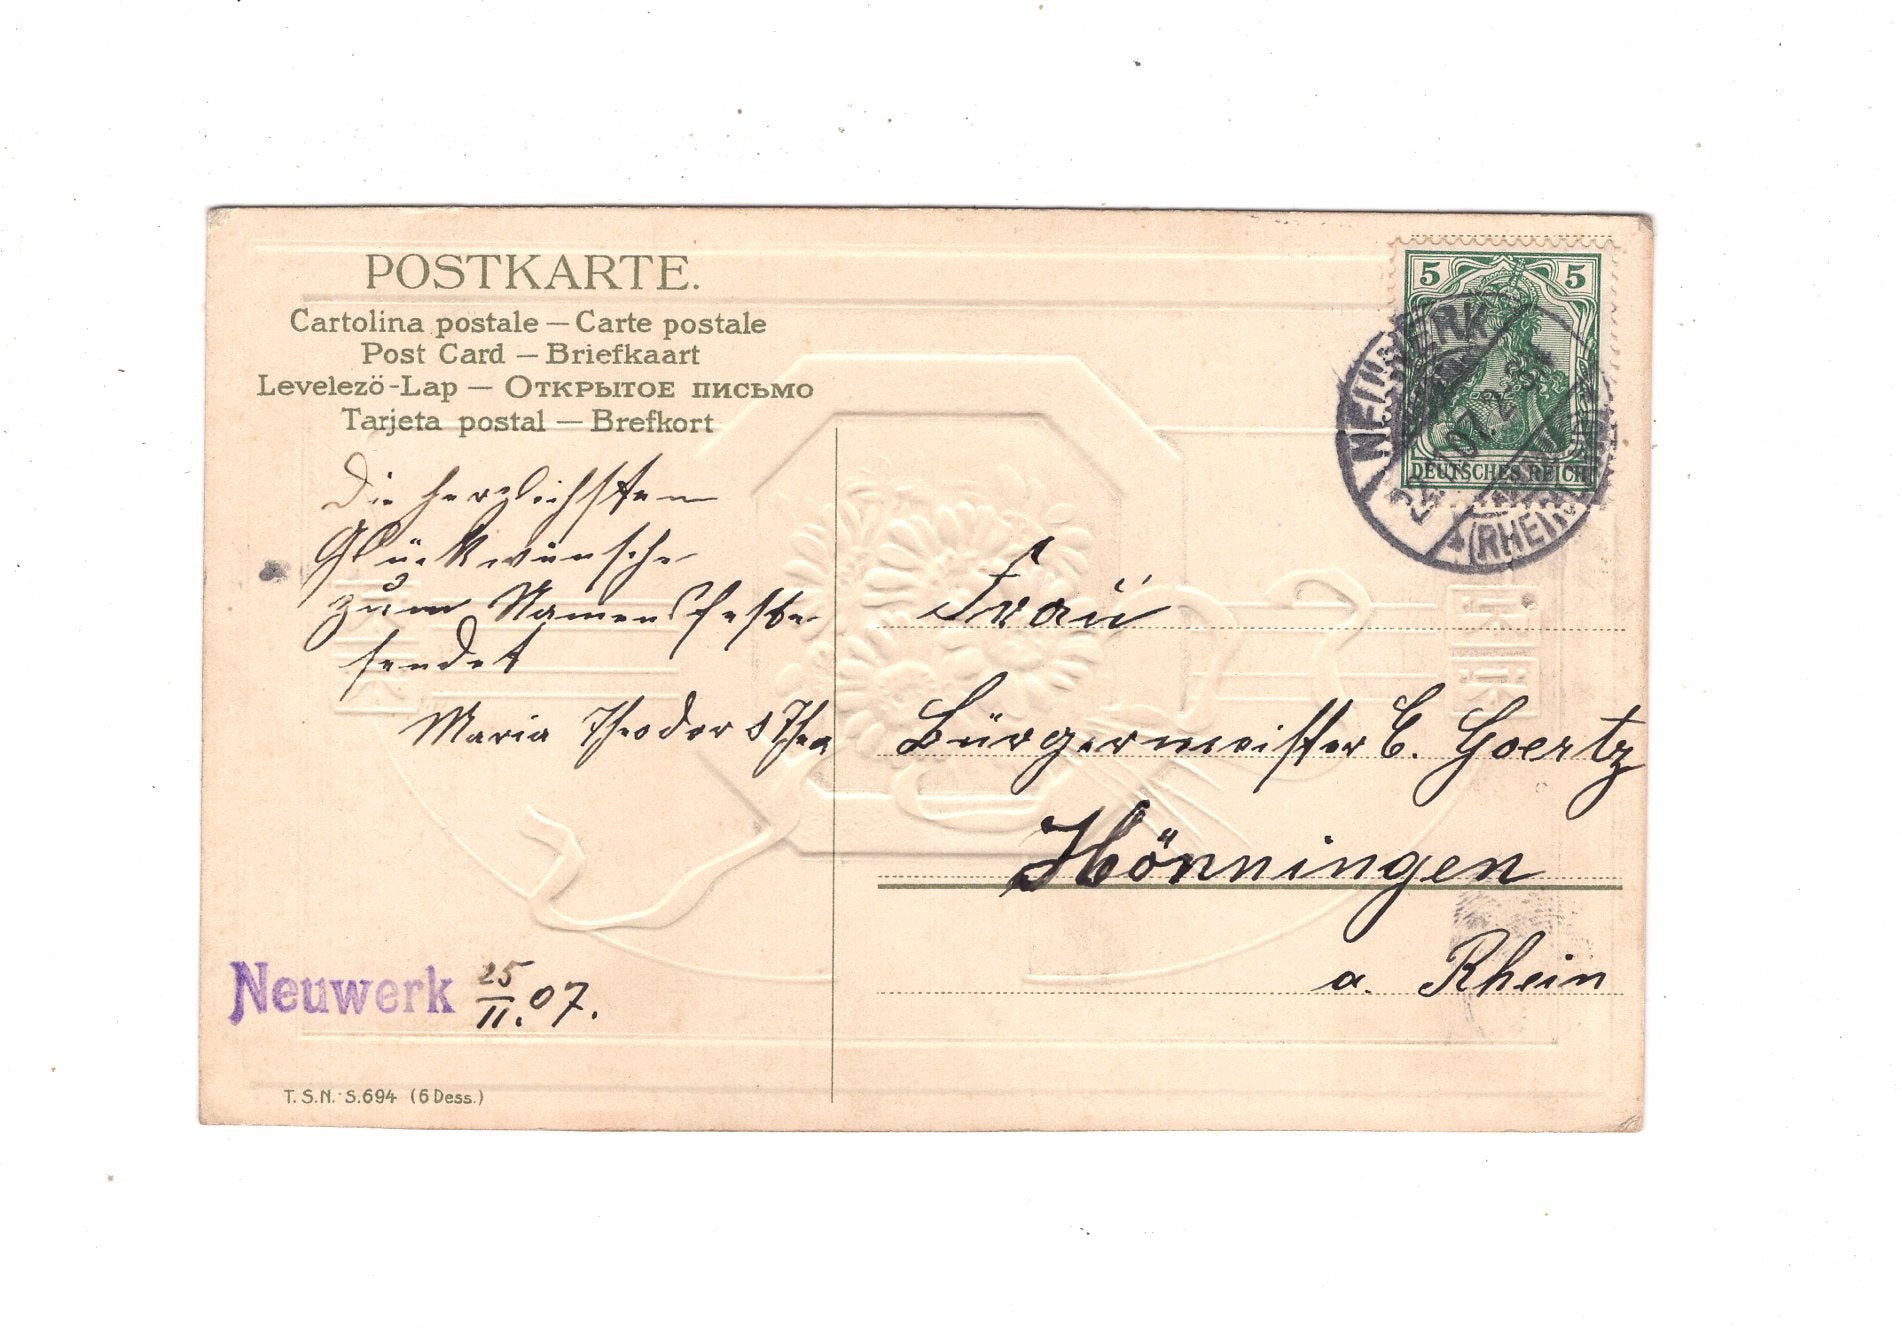 POSTKARTE.
Cartolina postale — Carte postale
Post Card — Briefkaart
Levelező-Lap — Открытое письмо
Tarjeta postal — Brefkort
Die herzlichsten
Glückwünsche
zum Namensfeste
sendet
Maria Theodor & Thea
Neuwerk 25/II.07.
T.S.N. S.694 (6 Dess.)
5 5
DEUTSCHES REICH
NEUWERK
07.2
(RHEIN
Frau
Bürgermeister C. Goertz
Hönningen
a. Rhein